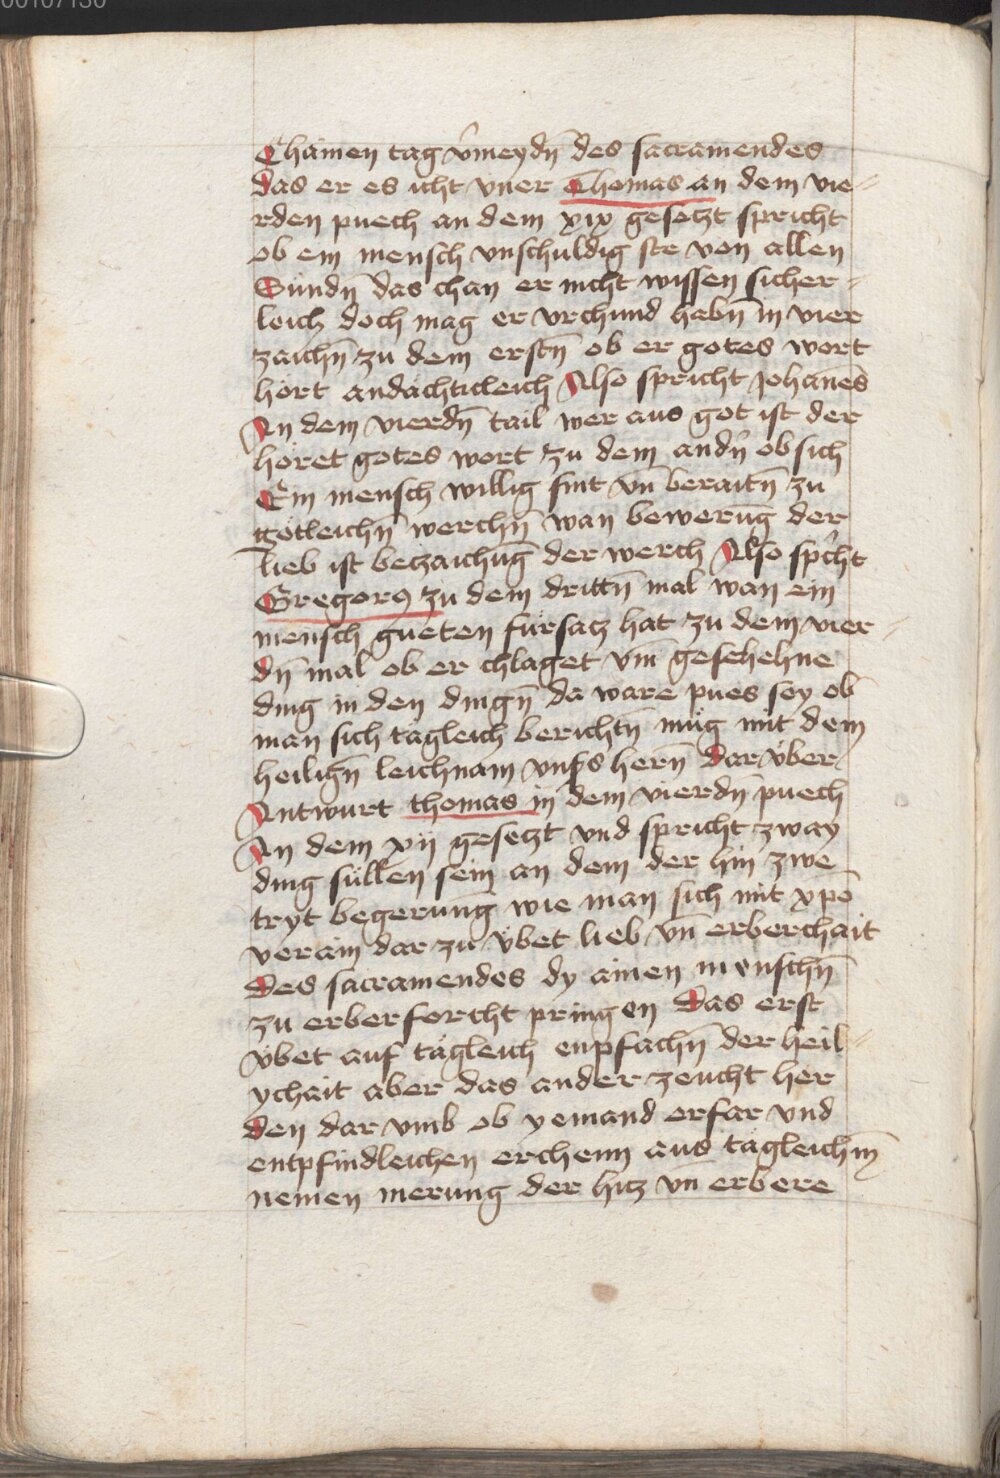 00107130
Chainen tag v̄meydn̄ des sacramendes
das er es icht vner Thomas an dem vie-
rden puech an dem xix gesetzt spricht
ob ein mensch vnschuldig ste von allen
Sündn̄ das chan er nicht wissen sicher-
leich doch mag er vrchund habn̄ in vier
zaichn̄ zu dem erstn̄ ob er gotes wort
hört andächticleich Also spricht Johānes
An dem vierdn̄ tail wer aus got ist der
höret gotes wort zu dem andn̄ ob sich
Ein mensch willig fint vn̄ beraitn̄ zu
götleichn̄ werchn̄ wan bewerūg der
lieb ist beczaichūg der werch Also sp̄cht
Gregorꝰ zu dem drittn̄ mal wan ein
mensch gueten fürsacz hat zu dem vier-
dn̄ mal ob er chlaget vm̄ geschehne
ding in den dingn̄ da ware pues sey ob
man sich tägleich berichtn̄ müg mit dem
heilign̄ leichnam vnſs hern̄ Dar vber
Antwurt thomas in dem vierdn̄ puech
An dem xij gesetzt vnd spricht zway
ding süllen sein an dem der hin zwe
tryt begerung wie man sich mit xpō
verain dar zu vbet lieb vn̄ erberchait
Des sacramendes dy ainen menschn̄
zu erberforcht pringen Das erst
vbet auf tägleich enpfachn̄ der heil-
ychait aber das ander zeucht her
den dar vmb ob yemand erfar vnd
entpfindleichen erchenn aus tägleichm̄
nemen merung der hicz vn̄ erbere